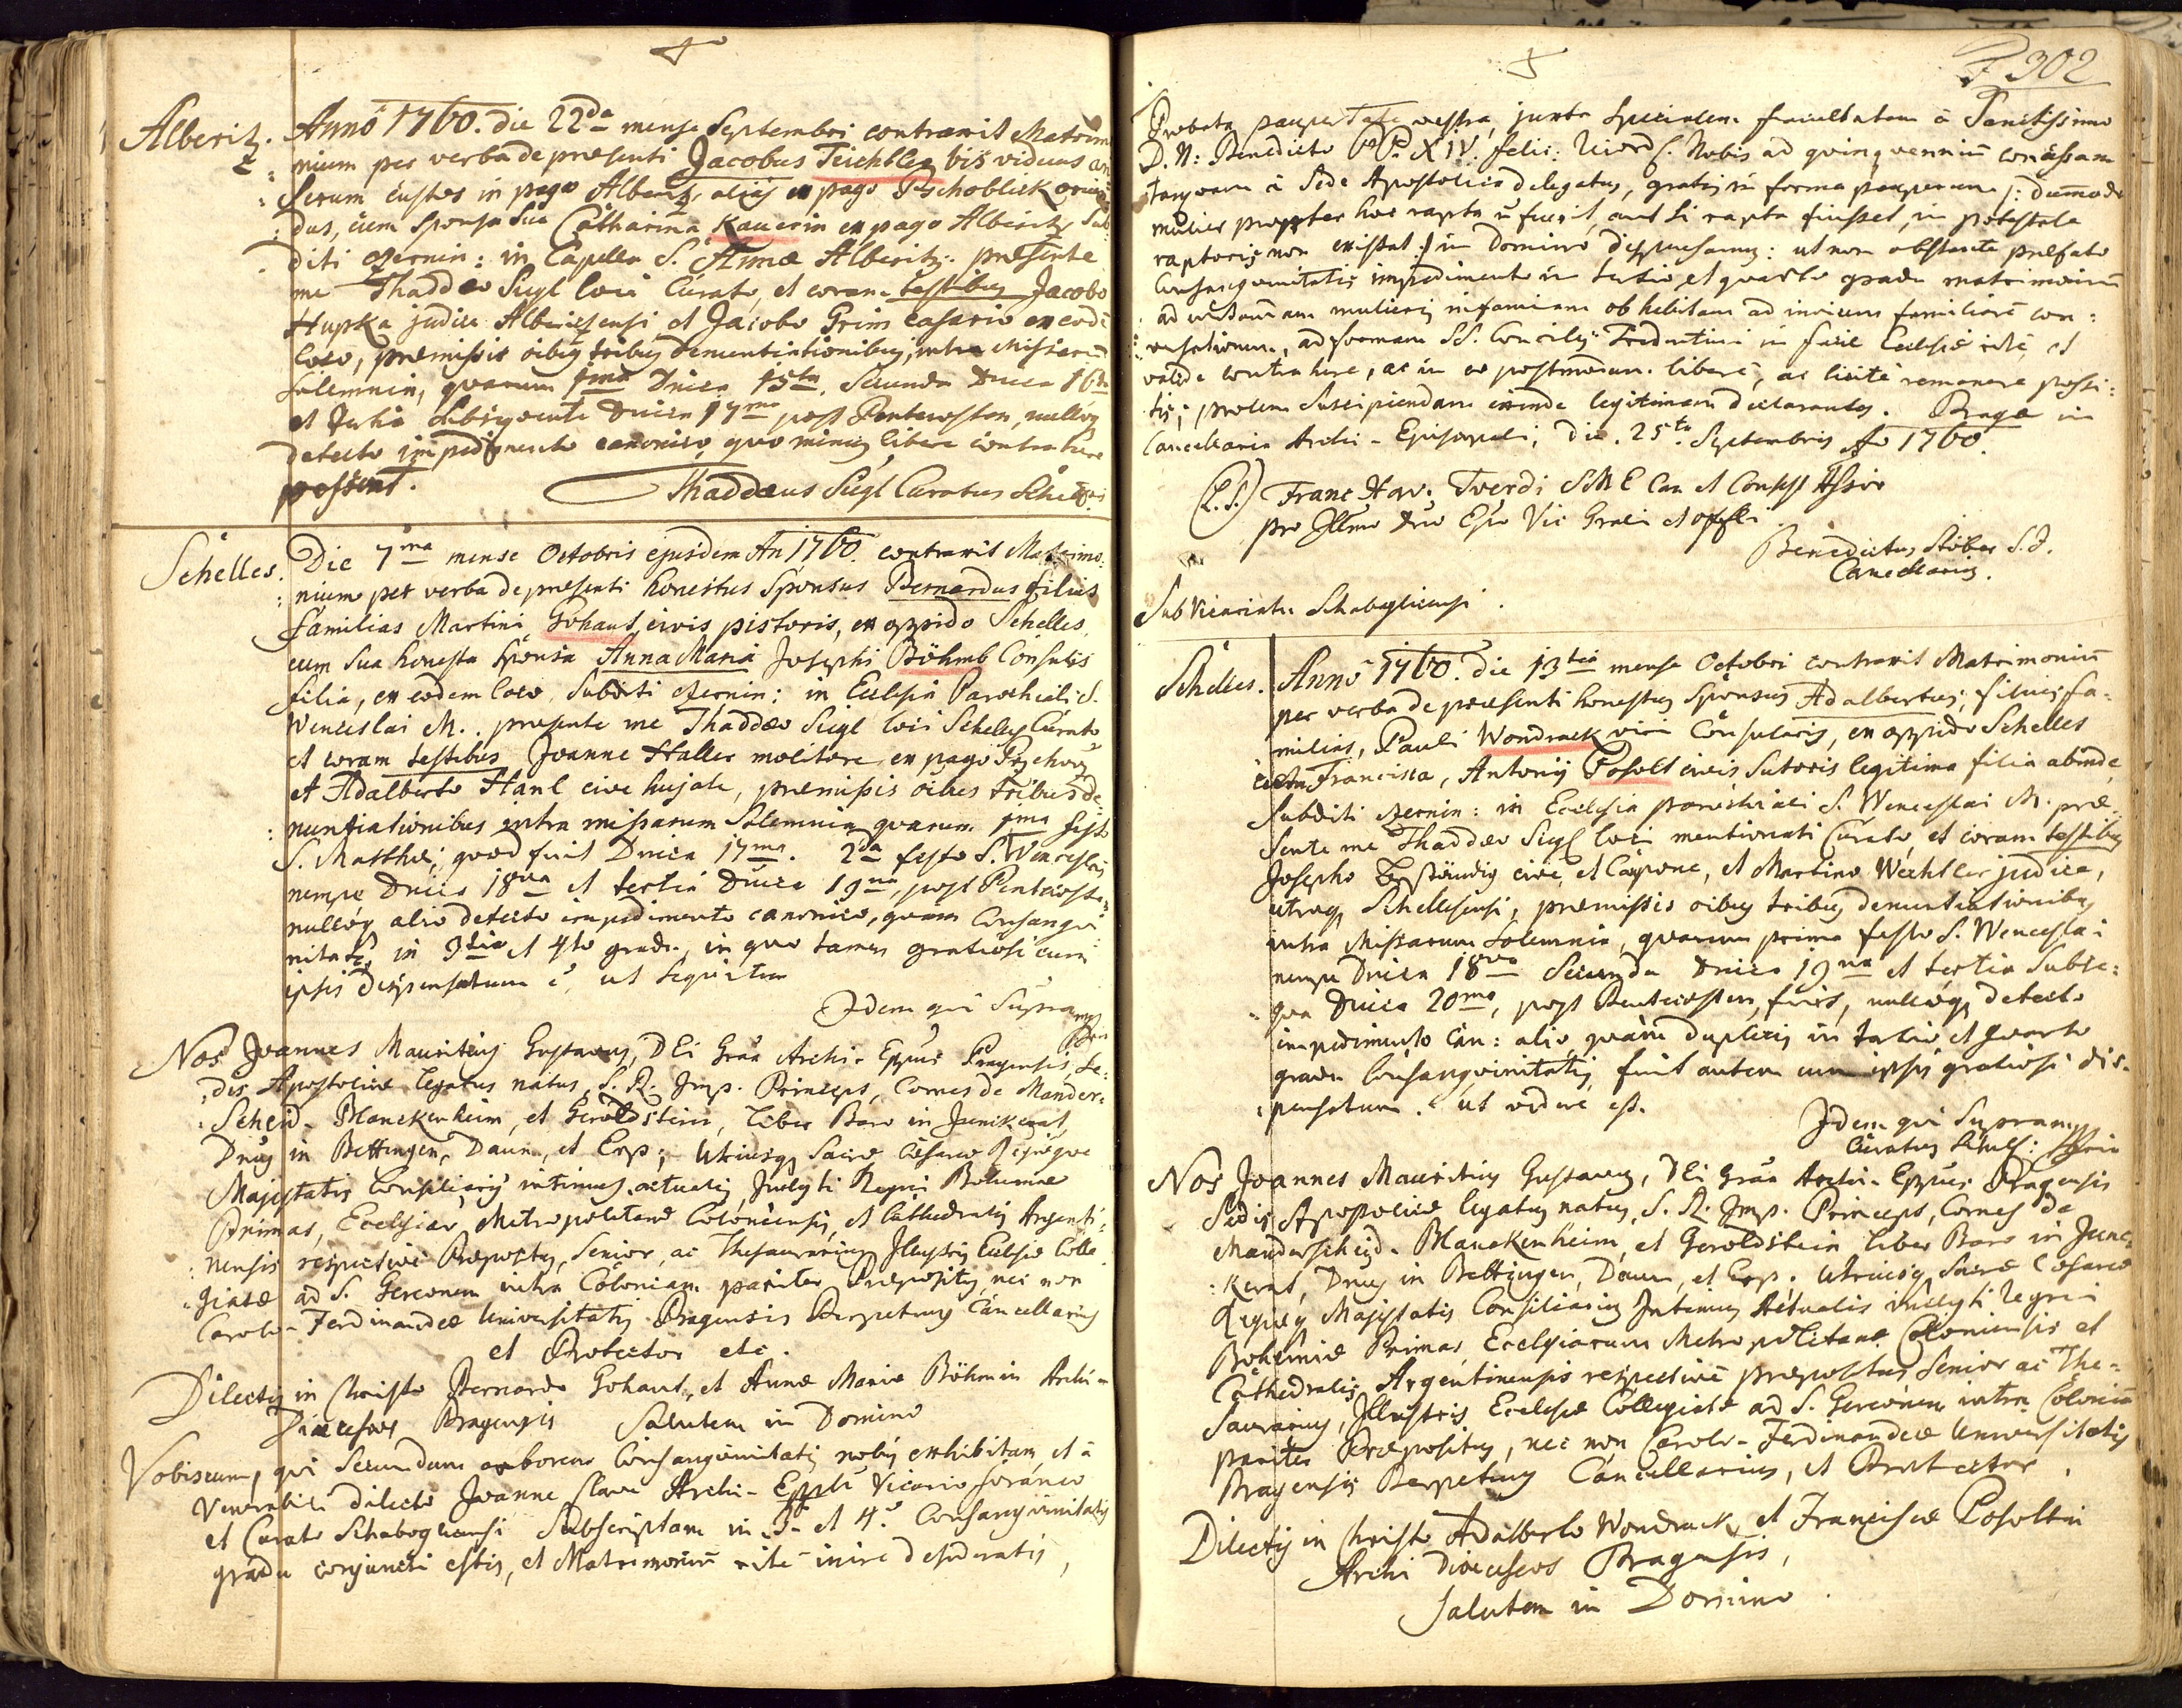 Alberitz.
Anno 1760. die 22da mense Septembri contraxit Matrimo
nium per verba de praesenti Jacobus Teichbler bis viduus
Serum custos in pago Alberitz, alias ex pago Pschoblick oriun
dus, cum Sponsa Sua Catharina Kauerin ex pago Alberitz Sub:
diti Czernin: in Capella S. Annae Alberitz: praesente
me Thaddaeo Siegl loci Curato, et coram testibus Jacobo
Hupka judice Alberitzensi et Jacobo Grim casario ex eodē
loco, praemissis oibus tribus denuntiationibus, intra Missarū
Solemnia, quarum 1ma Dnica 15ta, Secunda Dnica 16ta
et Tertia Subsequente Dnica 17ma post Pentecosten, nulloq
detecto impedimento canonico, quo minus libere contrahere
possent.
Thaddaeus Siegl Curatus Schelles:
Schelles.
Die 7ma mense Octobris ejusdem An 1760. contraxit Matrimo:
nium per verba de praesenti honestus Sponsus Bernardus filius
familias Martini Gohaut, civis pistoris, ex oppido Schelles,
cum Sua honesta Sponsa Anna Maria Josephi Böhmb Consulis
filia, ex eodem loco, Subditi Czernin: in Ecclesia Parochiali S.
Wenceslai M.. praesente me Thaddaeo Siegl loci Schelles Curato
et coram testibus Joanne Haller molitore ex pago
et Adalberto Hanl cive hujate, praemissis oibus tribus de
nuntiationibus intra missarum Solemnia, quarum 1ma festo
S. Matthaei, quod fuit Dnica 17ma. 2da festo S. Wenceslai
nempe Dnica 18va et tertia Dnica 19na, post Pentecoste:
nulloq alio detecto impedimento canonico, quam Consangui
nitatis in 3tio et 4to gradu, in quo tamen gratiose cum
ipsis dispensatum ē, ut sequitur
Idem qui Supra
Nos Joannes Mauritius Gustavus, DEi Grāa Archi-Eppus Pragensis, Se:
dis Apostolicae legatus natus, S. R. Imp. Princeps, Comes de Mander:
Scheid-Blanckenheim, et Geroldstein, Liber Baro in Junckerat,
Dnus in Bettingen, Daun, et Erp; Utriusq Sacrae Caesareo Regiaeque
Majestatis Consiliarius intimus actualis, Inclyti Regni Bohemiae
Primas, Ecclesiar Metropolitanae Coloniensis, et Cathedralis Argenti:
nensis respective Praepositus, Senior, ac Thesaurarius, Illustris Ecclesiae Colle
giatae ad S. Gereonem intra Coloniam pariter Praepositus, nec non
Carolo-Ferdinandeae Universitatis Pragensis Perpetuus Cancellarius
et Protector etc.
Dilectis in Christo Bernardo Gohaut, et Annae Mariae Böhmin Archi-
Dioeceseos Pragensis Salutem in Domino
Vobiscum, qui Secundum arborem Consanguinitatis nobis exhibitam, et a
Venerabili dilecto Joanne Slavi Archi-Eppli Vicario foraneo
et Curato Schaboglicensi Subscriptam in 3o et 4o Consanguinitatis
gradu conjuncti estis, et Matrimonium rite inire desideratis,
F 302
Probata paupertate vestra, juxta Specialem facultatem a Sanctissimo
D. N: Benedicto PP. XIV. felic: Nobis ad quinquennium concessam
tanquam a Sede Apostolica delegatus, gratis in forma pauperum /: dumodo
mulier propter hoc rapta n fuerit, aut si rapta fuisset, in potestate
raptoris non existat :/ in Domino dispensamus: ut non obstante praefato
Consanguinitatis impedimento in tertio et quarto gradu matrimonium
ad evitandam mulieris infamiam ob habitam ad invicem familiarē con:
versationem, ad formam SS. Concilij Tridentini in facie Ecclesiae rite, et
valide contrahere, ac in eo postmodum libere, ac licite remanere possi:
tis; prolem Suscipiendam exinde legitimam declarantes. Pragae in
Cancellaria Archi-Episcopali, die 25ta Septembris Ao 1760.
(L.S.) Franc Xav. Twerdi S M E Can et Consist Assor
pro Illmo Dno Epo Vic Grali et Offli
Benedictus Stöber S. J.
Cancellarius.
Sub Vicariatu Schaboglicensi.
Schelles.
Anno 1760. die 13tia mense Octobri contraxit Matrimoniū
per verba de praesenti honestus Sponsus Adalbertus, filius fa:
milias, Pauli Wondrack viri Consularis, ex oppido Schelles
cum Francisca, Antonij Posolt civis Sutoris legitima filia abinde
Subditi Czernin: in Ecclesia parochiali S. Wenceslai M. prae
sente me Thaddaeo Siegl loci mentionati Curato, et coram testibus
Josepho Beständig cive, et Caupone, et Martino Wechtler judice,
utroq Schellesensi, praemissis oibus tribus denuntiationibus
intra Missarum Solemnia, quarum prima festo S. Wenceslai
nempe Dnica 18va Secunda Dnica 19na et tertia Subse:
qua Dnica 20ma, post Pentecosten fuit, nulloq detecto
impedimento Can: alio, quam duplicis in tertio et quarto
gradu Consanguinitatis, fuit autem cum ipsis gratiose dis-
pensatum. ut videre est.
Idem qui Supra
Curatus Schells:
Nos Joannes Mauritius Gustavus, DEi Grāa Archi-Eppus Pragensis
Sedis Apostolicae legatus natus, S. R. Imp. Princeps, Comes de
Manderscheid-Blanckenheim, et Geroldstein Liber Baro in Junc:
kerat, Dnus in Bettingen, Daun, et Erp. Utriusq Sacrae Caesareo
Regiaeq Majestatis Consiliarius Intimus Actualis inclyti regni
Bohemiae Primas, Ecclesiarum Metropolitanae Coloniensis et
Cathedralis Argentinensis respective praepositus Senior ac The-
saurarius, Illustris Ecclesiae Collegiatae ad S. Gereonem intra Coloniā
pariter Praepositus, nec non Carolo-Ferdinandeae Universitatis
Pragensis Perpetuus Cancellarius, et Protector.
Dilectis in Christo Adalberto Wondrack, et Franciscae Posoltin
Archi Dioeceseos Pragensis,
Salutem in Domino.